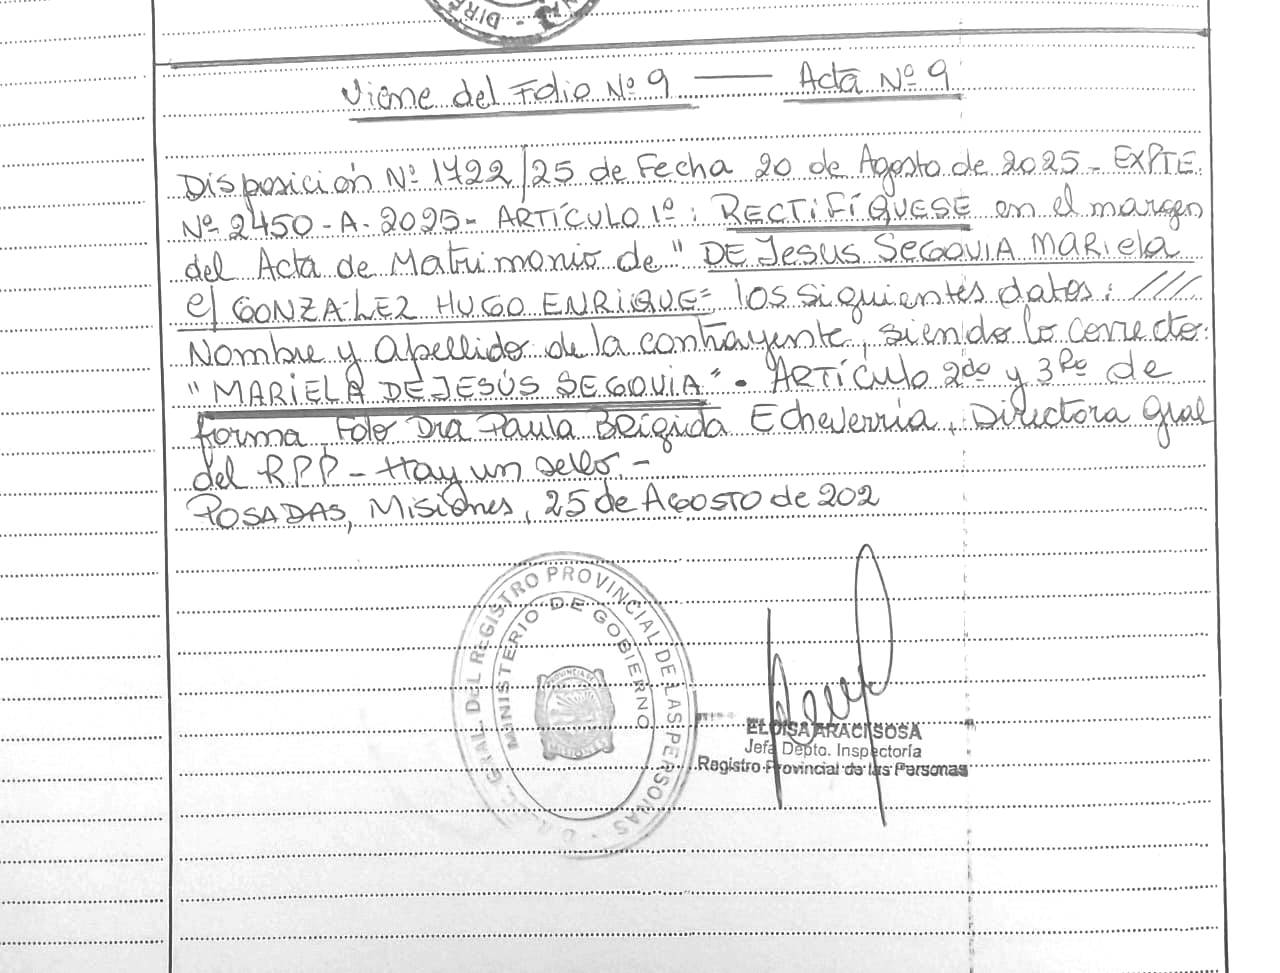 DIRE
Viene del Folio Nº 9 —— Acta Nº 9
Disposición Nº 1722/25 de Fecha 20 de Agosto de 2025 - EXPTE.
Nº 2450 - A - 2025 - ARTÍCULO 1º : RECTIFÍQUESE en el margen
del Acta de Matrimonio de " DE Jesus SEGOVIA MARIELA
c/ GONZALEZ HUGO ENRIQUE" los siguientes datos: ////
Nombre y apellido de la contrayente, siendo lo correcto:
"MARIELA DE JESÚS SEGOVIA". ARTÍCULO 2do y 3Ro de
forma, Fdo Dra Paula BRÍGIDA Echeverría, Directora Gral
del RPP - Hay un sello. -
POSADAS, Misiones, 25 de AGOSTO de 202
GRAL. DEL REGISTRO PROVINCIAL DE LAS PERSONAS
MINISTERIO DE GOBIERNO
PROVINCIA DE
MISIONES
ELOISA ARACI SOSA
Jefa Depto. Inspectoría
Registro Provincial de las Personas